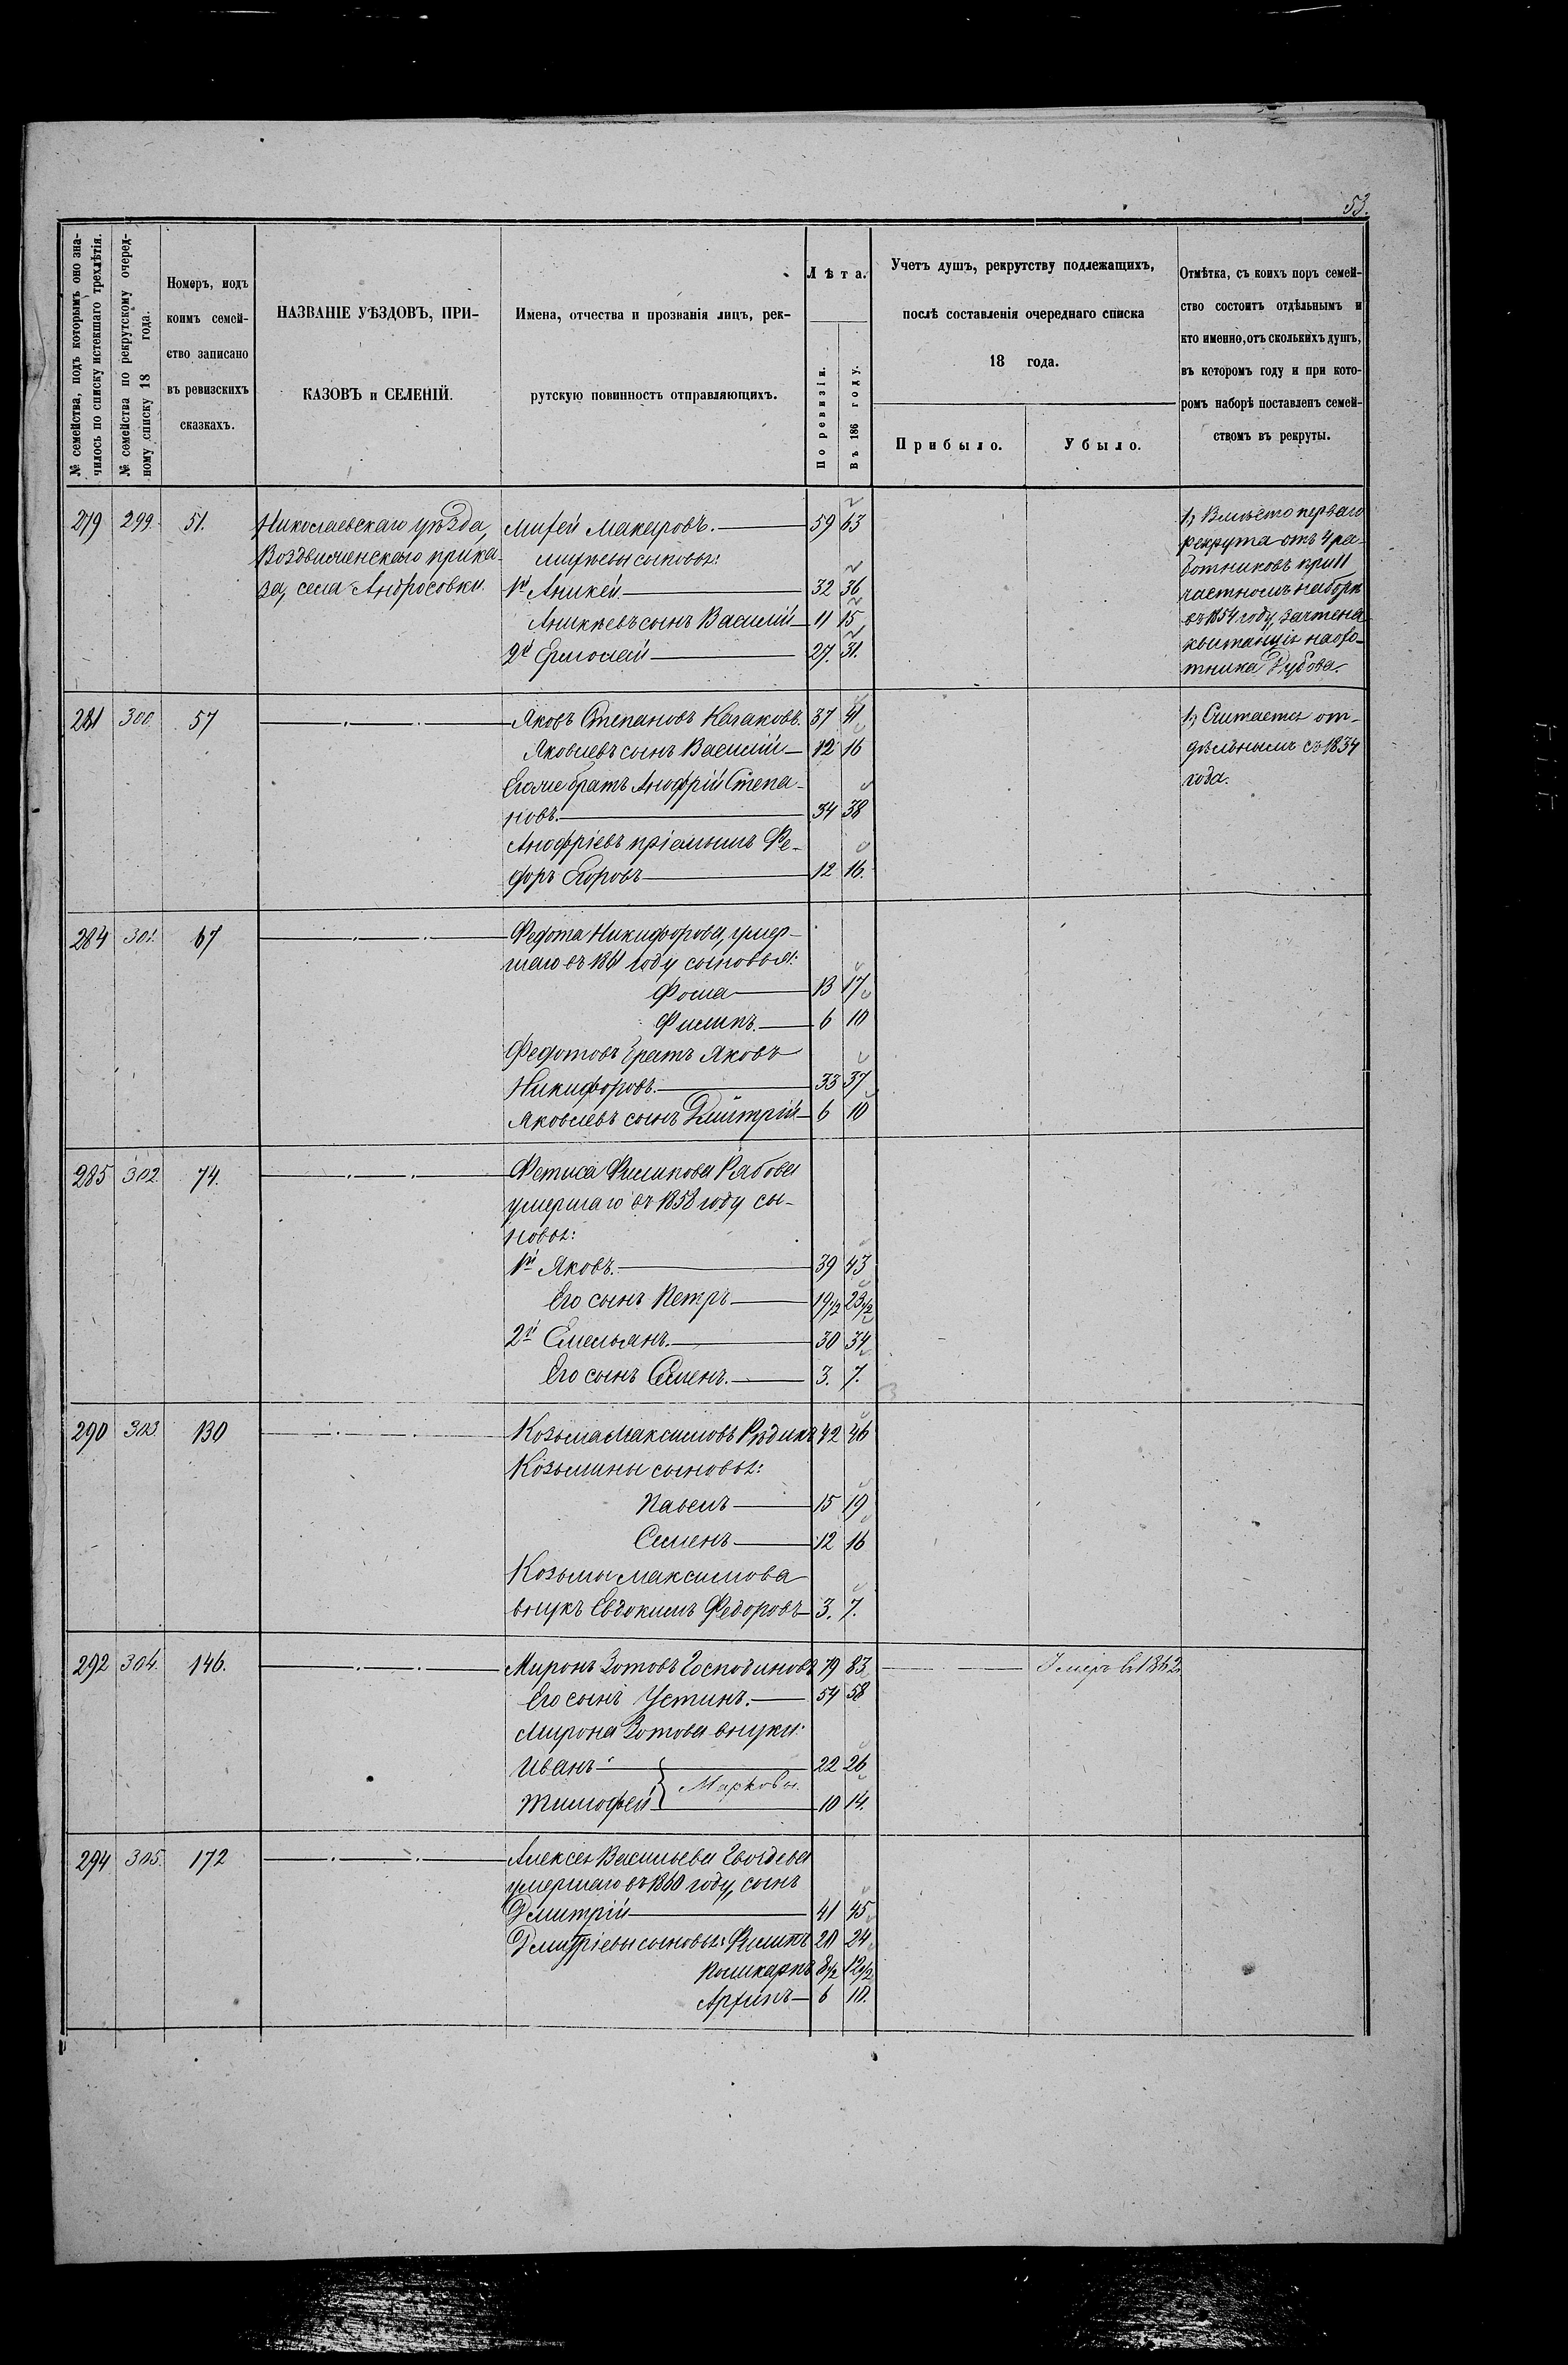 53.
№ семейства, подъ которымъ оно зна-
чилось по списку истекшаго трехлѣтія.
№ семейства по рекрутскому очеред-
ному списку 18 года.
Номеръ, подъ
коимъ семей-
ство записано
въ ревизскихъ
сказкахъ.
НАЗВАНІЕ УѢЗДОВЪ, ПРИ-
КАЗОВЪ и СЕЛЕНІЙ.
Имена, отчества и прозванія лицъ, рек-
рутскую повинность отправляющихъ.
Лѣта.
По ревизіи.
Въ 186 году.
Учетъ душъ, рекрутству подлежащихъ,
послѣ составленія очереднаго списка
18 года.
Прибыло.
Убыло.
Отмѣтка, съ коихъ поръ семей-
ство состоитъ отдѣльнымъ и
кто именно, отъ сколькихъ душъ,
въ которомъ году и при кото-
ромъ наборѣ поставленъ семей-
ствомъ въ рекруты.
279 299. 51. Николаевскаго уѣзда,
Воздвиженскаго прика-
за, села Андросовки.
Миѳей Макаровъ. 59 63
Миѳѣевы сыновья:
1й Аникей 32 36
Аникѣевъ сынъ Василій 11 15
2й Ермолай 27. 31.
1, Вмѣсто перваго
рекрута отъ 4 ра-
ботниковъ при 11
частномъ наборѣ
въ 1854 году, зачтена
квитанція на охо-
тника Дубова.
281 300 57 Яковъ Степановъ Казаковъ. 37 41
Яковлевъ сынъ Василій 12 16
Егоже братъ Анофрій Степа-
новъ. 34 38
Анофріевъ пріемышъ Ѳе-
доръ Егоровъ 12 16.
1, Считается от-
дѣльнымъ съ 1834
года.
284 301. 67 Федота Никифорова, умер-
шаго въ 1861 году сыновья:
Фома 13 17
Филипъ. 6 10
Федотовъ братъ Яковъ
Никифоровъ. 33 37
Яковлевъ сынъ Дмитрій 6 10
285 302. 74. Фетиса Филипова Рябова
умершаго въ 1858 году сы-
новья:
1й Яковъ. 39 43
Его сынъ Петръ 19½ 23½
2й Емельянъ. 30 34
Его сынъ Семенъ. 3. 7.
290 303. 130 Козьма Максимовъ Рѣдикъ 42 46
Козьмины сыновья:
Павелъ 15 19
Семенъ 12 16
Козьмы Максимова
внукъ Евдокимъ Федоровъ 3. 7.
292 304. 146. Миронъ Зотовъ Господиновъ 79 83 Умеръ въ 1862
Его сынъ Устинъ. 54 58
Мирона Зотова внуки:
Иванъ 22 26
Марковы.
Тимофей 10 14.
294 305. 172 Алексея Васильева Гвоздева
умершаго въ 1860 году, сынъ
Дмитрій 41 45
Дмитріевы сыновья: Филипъ 20 24
Поликарпъ 8½ 12½
Архипъ 6 10.